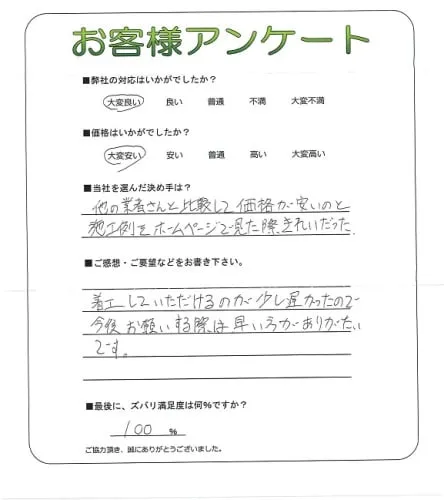 お客様アンケート
■弊社の対応はいかがでしたか?
大変良い 良い 普通 不満 大変不満
■価格はいかがでしたか?
大変安い 安い 普通 高い 大変高い
■当社を選んだ決め手は?
他の業者さんと比較して価格が安いのと
施工例をホームページで見た際きれいだった
■ご感想・ご要望などをお書き下さい。
着工していただけるのが少し遅かったので
今後お願いする際は早い方がありがたい
です。
■最後に、ズバリ満足度は何%ですか?
100 %
ご協力頂き、誠にありがとうございました。